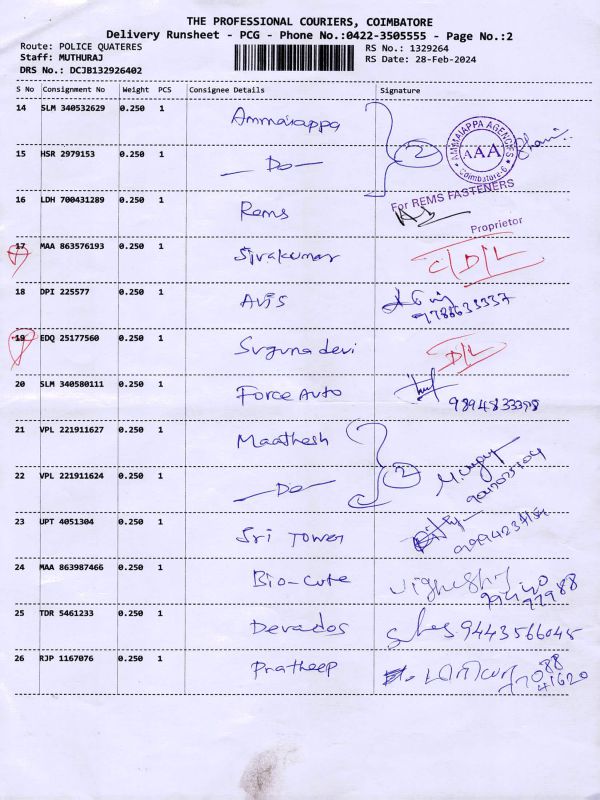 THE PROFESSIONAL COURIERS, COIMBATORE
Delivery Runsheet - PCG - Phone No.:0422-3505555 - Page No.:2
Route: POLICE QUATERES RS No.: 1329264
Staff: MUTHURAJ RS Date: 28-Feb-2024
DRS No.: DCJB132926402
S No Consignment No Weight PCS Consignee Details Signature
14 SLM 340532629 0.250 1 Ammaiappa 2
AMMAIAPPA AGENCIES
AAA
Coimbatore-6
15 HSR 2979153 0.250 1 —Do—
16 LDH 700431289 0.250 1 Rems
For REMS FASTENERS
Proprietor
17 MAA 863576193 0.250 1 Sivakumar C/D/L
18 DPI 225577 0.250 1 Avis
9788633337
19 EDQ 25177560 0.250 1 Suguna devi D/L
20 SLM 340580111 0.250 1 Force Auto
21 VPL 221911627 0.250 1 Maathesh 2
22 VPL 221911624 0.250 1 —Do—
23 UPT 4051304 0.250 1 Sri Tower
24 MAA 863987466 0.250 1 Bio-cute
25 TDR 5461233 0.250 1 Devados 9443566045
26 RJP 1167076 0.250 1 Pratheep
77088
41620